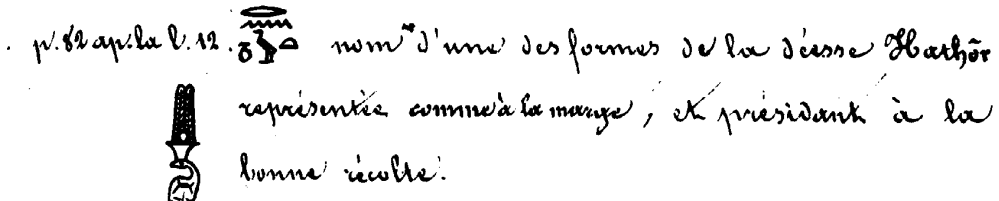 p. 82 ap. la l. 12. nom d'une des formes de la déesse Hathôr
représentée comme à la marge, et présidant à la
bonne récolte.